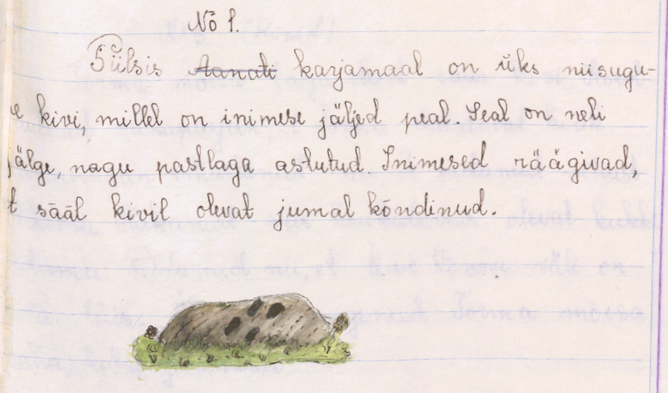 Nō 1.
Piilsis Aanati karjamaal on üks niisugu-
e kivi, millel on inimese jäljed peal. Seal on neli
jälge, nagu pastlaga astutud. Inimesed räägivad,
t sääl kivil olevat jumal kõndinud.